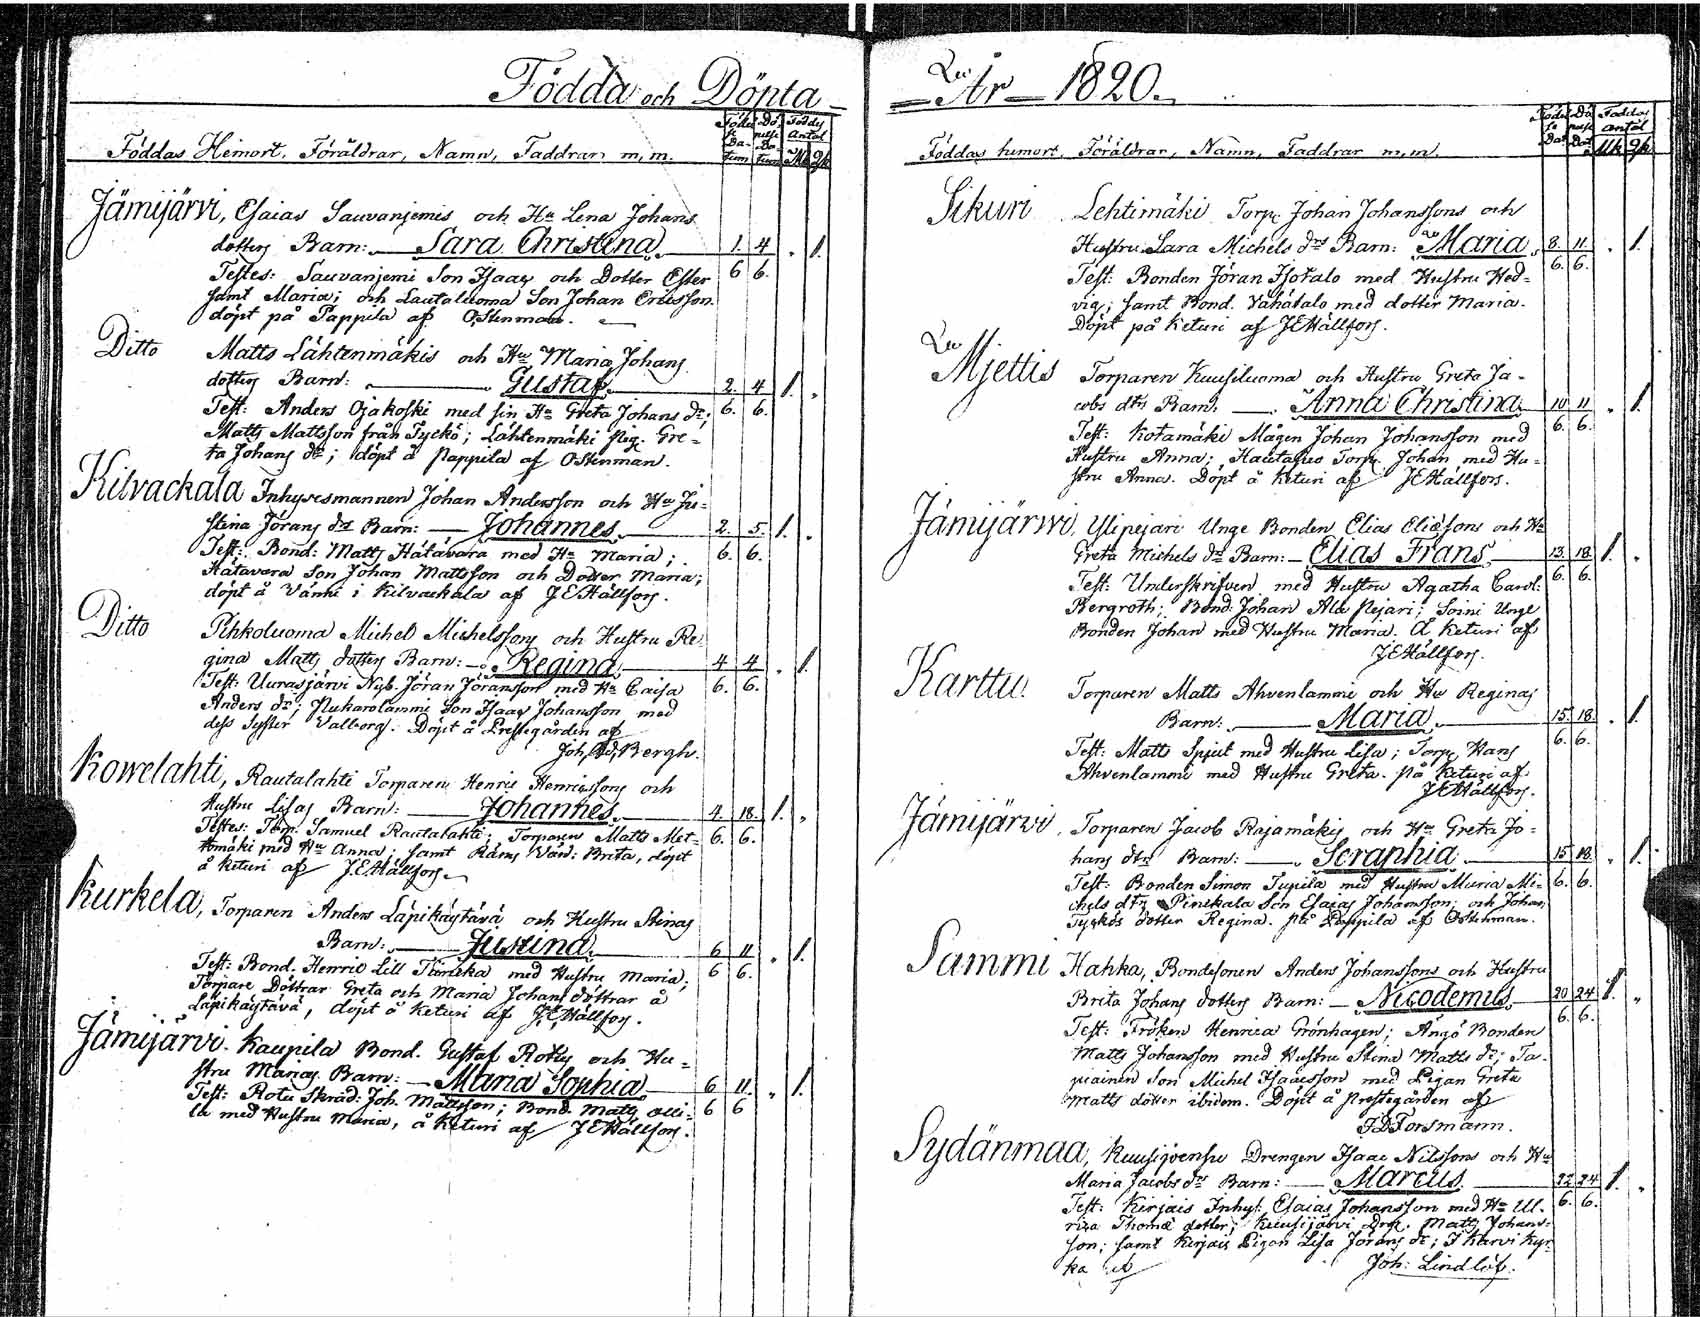 Födda och Döpta
Föddas Hemort, Föräldrar, Namn, Faddrar m, m.
Födel
se
Da-
tum
Dö
pelse
Da-
tum
Föddas
Antal
Mk
Qk
Jämijärvi, Esaias Sauvanjemis och Hu Lena Johans
dotters Barn: Sara Christina 1. 4 1.
Testes: Sauvanjemi Son Isaac och Dotter Ester 6 6.
samt Maria; och Lautaluoma Son Johan Ericsson.
döpt på Pappila af OStenman.
Ditto Matts Lähtenmäkis och Hu Maria Johans
dotters Barn: Gustaf 2. 4 1.
Test: Anders Ojakoski med sin Hu Greta Johans dr; 6. 6.
Matts Mattsson från Tyckö; Lähtenmäki Pig. Gre-
ta Johans dr; döpt å Pappila af OStenman.
Kilvackala Inhysesmannen Johan Andersson och Hu Ju-
stina Jörans drs Barn: Johannes 2. 5. 1.
Test: Bond: Matts Hätävara med Hu Maria; 6. 6.
Hätavara Son Johan Mattsson och Dotter Maria;
döpt å Vänni i Kilvackala af JEHällfors.
Ditto Pihkoluoma Michel Michelssons och Hustru Re-
gina Matts dotters Barn: Regina 4 4 1.
Test: Uurasjärvi Nyb. Jöran Jöransson med Hu Caisa 6. 6.
Anders dr; Nukarolammi Son Isaac Johansson med
dess Syster Valborg. Döpt å Prestegården af
Joh. Bergh.
Kowelahti, Rautalahti Torparen Henric Henricssons och
Hustru Lisas Barn: Johannes 4. 18. 1.
Testes: Torp. Samuel Rautalahti; Torparen Matts Met- 6. 6.
tomäki med Hu Anna; samt Räms Värd: Brita, döpt
å Keturi af JEHällfors
Kurkela, Torparen Anders Läpikäytävä och Hustru Stinas
Barn: Justina 6 11 1.
Test: Bond. Henric Lill med Hustru Maria; 6 6.
Torpare Döttrar Greta och Maria Johans döttrar å
Läpikäytävä, döpt å Keturi af JEHällfors.
Jämijärvi. Kaupila Bond. Gustaf Rotus och Hu-
stru Marias Barn: Maria Sophia 6 11. 1.
Test: Rotu Skräd: Joh. Mattsson; Bond. Matts Olli- 6 6
la med Hustru Maria, å Keturi af JEHällfors.
År 1820.
Föddas hemort, Föräldrar, Namn, Faddrar m, m.
Födel
se
Dat
Dö
pelse
Dat
Föddas
antal
Mk
Qk
Sikuri Lehtimäki Torp. Johan Johanssons och
Hustru Sara Michels drs Barn: Maria 8. 11. 1.
Test: Bonden Jöran Isotalo med Hustru Hed- 6. 6.
vig; samt Bond. Vähätalo med dotter Maria.
Döpt på Keturi af JEHällfors.
Mjettis Torparen Kuusiluoma och Hustru Greta Ja-
cobs drs Barn: Anna Christina 10 11 1.
Test: Kotamäki Mågen Johan Johansson med 6. 6.
Hustru Anna; Hautasuo Torp. Johan med Hu-
stru Anna. Döpt å Keturi af JEHällfors.
Jämijärwi, Ylipejari Unge Bonden Elias Eliæsons och Hu
Greta Michels drs Barn: Elias Frans 13. 18. 1.
Test: Underskrifven med Hustru Agatha Carol: 6. 6.
Bergroth; Bond: Johan Ala Pejari; Soini Unge
Bonden Johan med Hustru Maria. Å Keturi af
JEHällfors.
Karttu. Torparen Matts Ahvenlammi och Hu Reginas
Barn: Maria 15. 18. 1.
Test: Matts Spjut med Hustru Lisa; Torp. Hans 6. 6.
Ahvenlammi med Hustru Greta. på Keturi af
JEHällfors.
Jämijärvi, Torparen Jacob Rajamäkis och Hu Greta Jo-
hans drs Barn: Seraphia 15 18. 1.
Test: Bonden Simon Tupila med Hustru Maria Mi- 6. 6.
chels dr; Pinskala Son Esaias Johansson; och Johan
Tyckös dotter Regina. på Pappila af OStenman.
Sammi Hahka, Bondesonen Anders Johanssons och Hustru
Brita Johans dotters Barn: Nicodemus 20 24 1.
6. 6.
Test: Fröken Henrica Grönhagen; Ängö Bonden
Matts Johansson med Hustru Stina Matts dr; Ta-
piainen Son Michel Isaacsson med Pigan Greta
Matts dotter ibidem. Döpt å Prestegården af
Forsmann.
Sydänmaa, Kuusijoensu Drengen Isaac Nilssons och Hu
Maria Jacobs drs Barn: Marcus 22 24 1.
Test: Kirjais Inhys. Esaias Johansson med Hu Ul- 6. 6.
rica Thomæ dotter; Kuusijärvi Drg. Matts Johans-
son; samt Kirjais Pigan Lisa Jörans dr; I Karvi Kyr-
ka af Joh: Lindlöf.